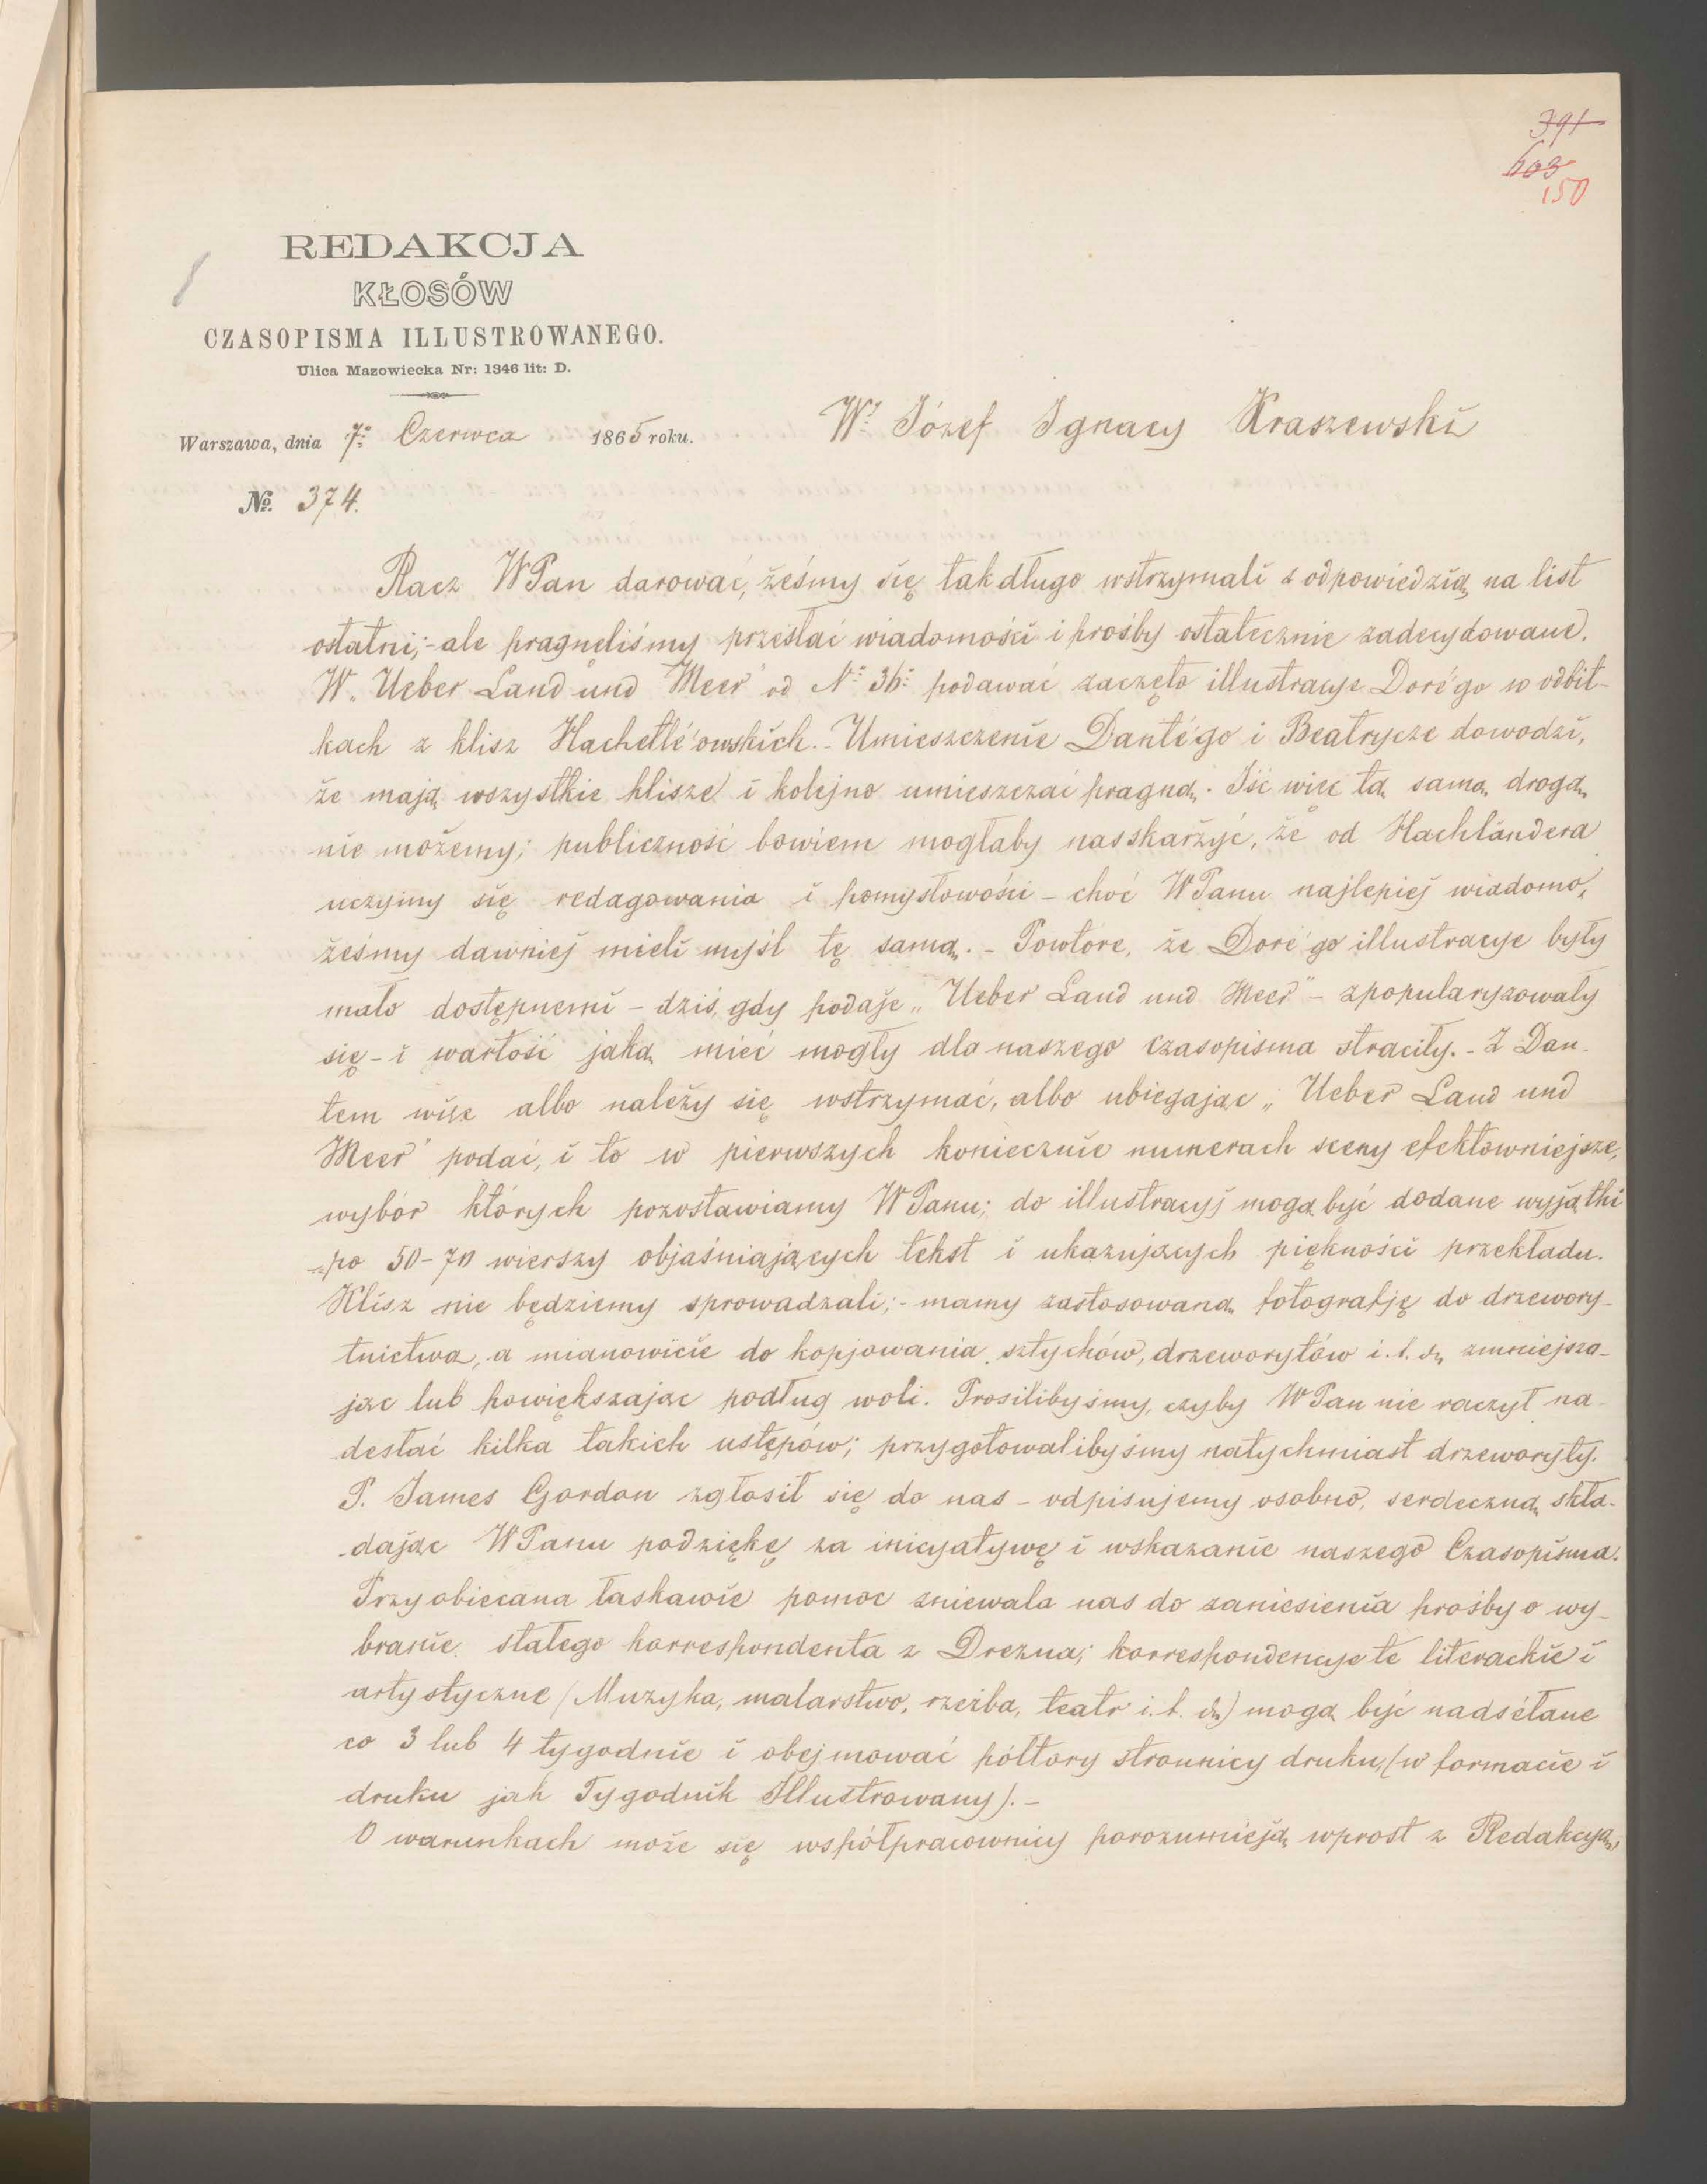 391
603
150
REDAKCJA
KŁOSÓW
CZASOPISMA ILLUSTROWANEGO.
Ulica Mazowiecka Nr: 1346 lit: D.
Warszawa, dnia 7º Czerwca 1865 roku.
Wº Józef Ignacy Kraszewski
No. 374.
Racz WPan darować, żeśmy się tak długo wstrzymali z odpowiedzią na list
ostatni;- ale pragnęliśmy przesłać wiadomości i prośby ostatecznie zadecydowane.
W „Ueber Land und Meer" od Nº 36º podawać zaczęto illustracye Doré'go w odbit-
kach z klisz Hachetté'owskich. - Umieszczenie Danté'go i Beatrycze dowodzi,
że mają wszystkie klisze i kolejno umieszczać pragną. Iść więc tą samą drogą
nie możemy; publiczność bowiem mogłaby nas skarżyć, że od Hackländera
uczymy się redagowania i pomysłowości - choć WPanu najlepiej wiadomo,
żeśmy dawniej mieli myśl tę samą. - Powtóre, że Doré'go illustracye były
mało dostępnemi - dziś, gdy podaje „Ueber Land und Meer" - spopularyzowały
się - i wartość jaką mieć mogły dla naszego czasopisma straciły. - Z Dan-
tem więc albo należy się wstrzymać, albo ubiegając „Ueber Land und
Meer" podać, i to w pierwszych koniecznie numerach sceny efektowniejsze,
wybór których pozostawiamy WPanu; do illustracyj mogą być dodane wyjątki
po 50-70 wierszy objaśniających tekst i ukazujących piękności przekładu.
Klisz nie będziemy sprowadzali;- mamy zastosowaną fotografję do drzewory-
tnictwa, a mianowicie do kopjowania sztychów, drzeworytów i. t. d., zmniejsza-
jąc lub powiększając podług woli. Prosilibyśmy, czyby WPan nie raczył na-
desłać kilka takich ustępów; przygotowalibyśmy natychmiast drzeworyty.
P. James Gordon zgłosił się do nas - odpisujemy osobno, serdeczną skła-
dając WPanu podziękę za inicyatywę i wskazanie naszego Czasopisma.
Przyobiecana łaskawie pomoc zniewala nas do zaniesienia prośby o wy-
branie stałego korrespondenta z Drezna; korrespondencye te literackie i
artystyczne (Muzyka, malarstwo, rzeźba, teatr i. t. d.) mogą być nadsełane
co 3 lub 4 tygodnie i obejmować półtory stronnicy druku, (w formacie i
druku jak Tygodnik Illustrowany). -
O warunkach może się współpracownicy porozumieją wprost z Redakcyą,